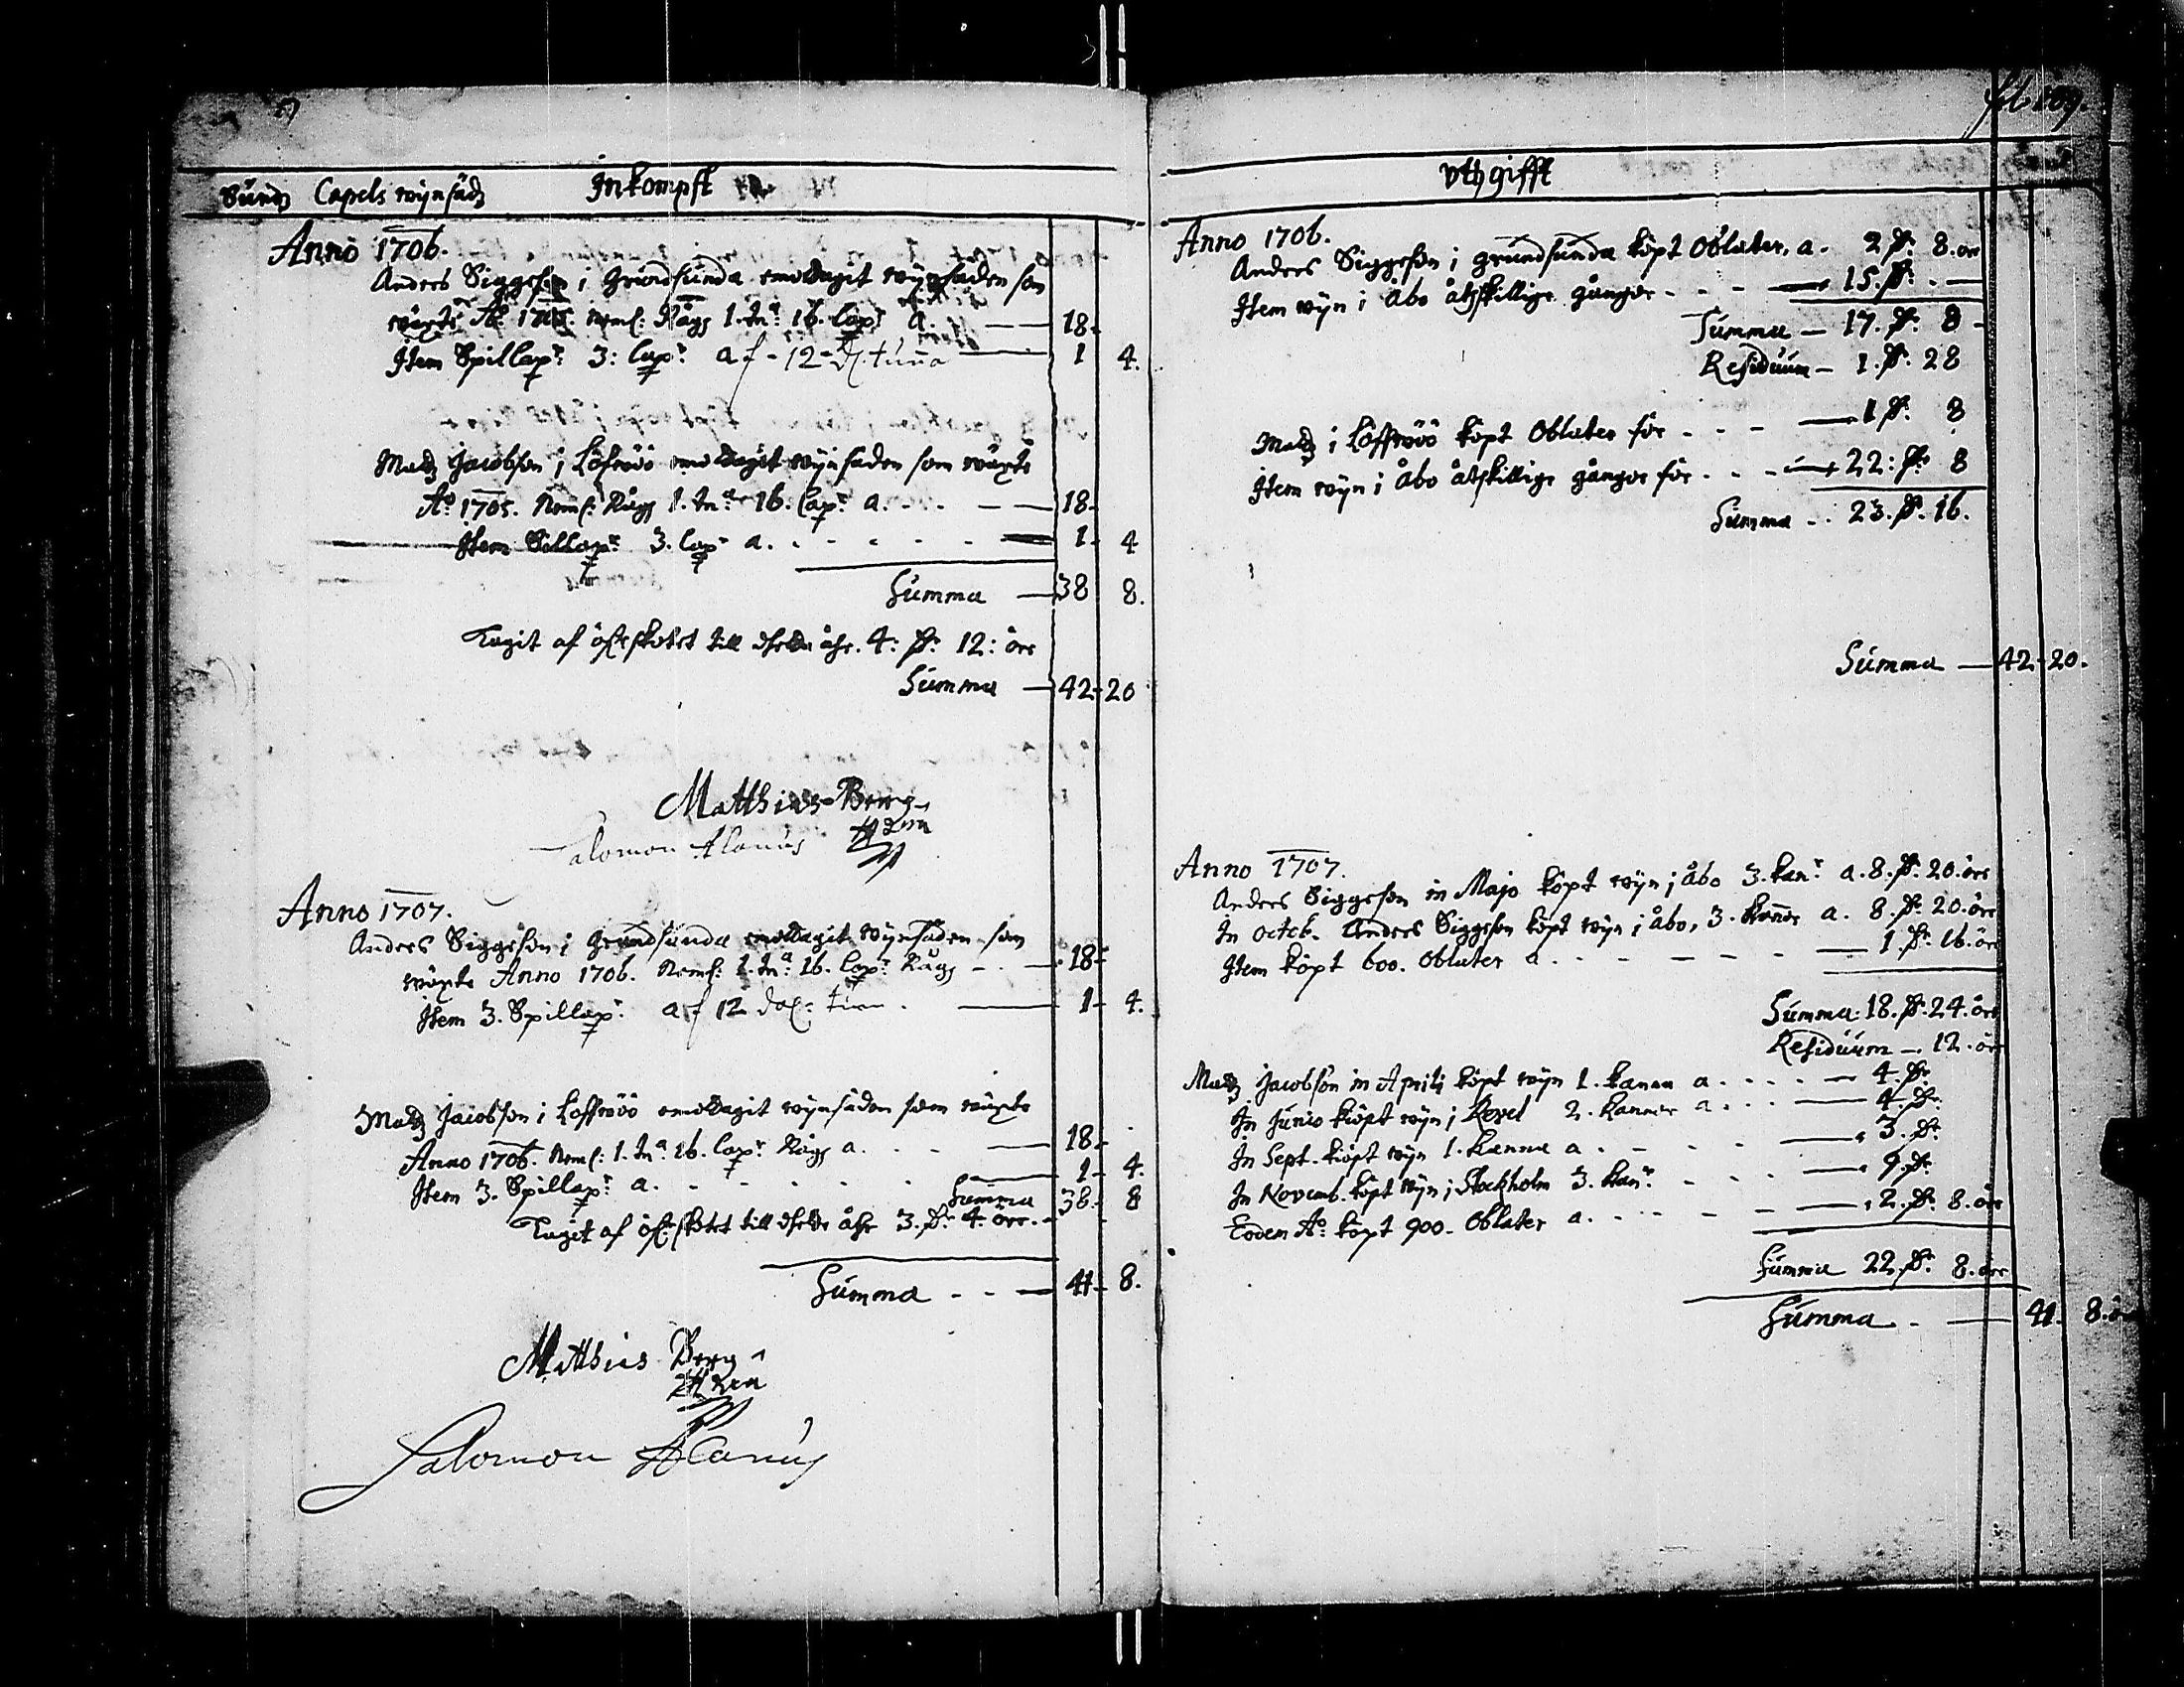 Sunds Capels wijnsädz Inkompst
Anno 1706.
Anders Siggesson i Grundsunda emottagit wijnsäden som
wäxte Ao 1705 neml: Rågg 1. tna 16. Capr a. — — 18.
Item Spillapr 3: Capr af 12 Dl. tunna — 1 4.
Madz Jacobson i Löfwöö emottagit wijnsäden som wäxte
Ao 1705. Neml: Rågg 1. tna 16. Capr a. - - — 18.
Item Spillapr 3. Capr a. - - - - - 1. 4
Summa — 38 8.
Tagit af öfskotet till åhr. 4: Dr. 12: öre
Summa — 42. 20
Matthias Berg
Salomon Alanus
Anno 1707.
Anders Siggesson i Grundsunda emottagit wijnsäden som
wäxte Anno 1706. Neml: 1. tna: 16. Capr Rågg - - — 18.
Item 3. Spillapr. af 12 dal: tun. — 1. 4.
Madz Jacobson i Löffwöö emottagit wijnsäden som wäxte
Anno 1706. Neml: 1. tna 16. Capr Rågg a. . . — 18.
Item 3. Spillapr a. - - - - - 1. 4.
Summa 38. 8
Tagit af öfskotet till åhr 3. Dr 4. öre.
Summa - - — 41. 8.
Matthias Berg
Salomon Alanus
fol. 109.
Vthgifft
Anno 1706.
Anders Siggesson i grundsunda köpt Oblater, a. 2 Dr. 8. ör
Item wijn i Åbo åtskillige gånger - - - — 15. Dr. —
Summa — 17. Dr. 8 -
Residuum — 1. Dr. 28
Madz i Löffwöö köpt Oblater för - - - — 1 Dr. 8
Item wijn i Åbo åtskillige gånger för - - - — 22: Dr. 8
Summa - . 23. Dr. 16.
Summa — 42. 20.
Anno 1707.
Anders Siggesson in Majo köpt wijn i Åbo 3. kanr a. 8. Dr. 20. öre
In Octob. Anders Siggesson köpt wijn i Åbo, 3. kannor a. 8. Dr. 20. öre
Item köpt 600. Oblater a. - - - - - — 1. Dr. 16. öre
Summa. 18. Dr. 24. öre
Residuum — 12. öre
Madz Jacobson in Aprili köpt wijn 1. kanna a. - - - — 4. Dr
In Junio köpt wijn i Revel 2. kannor a. - - — 4. Dr.
In Sept. köpt wijn 1. kanna a - - - - — 3. Dr
In Novemb. köpt wijn i Stockholm 3. kanr - - - — 9. Dr
Eodem Ao: köpt 900. Oblater a. - - - - — 2. Dr. 8. öre
Summa 22. Dr. 8. öre
Summa - - — 41. 8. ör